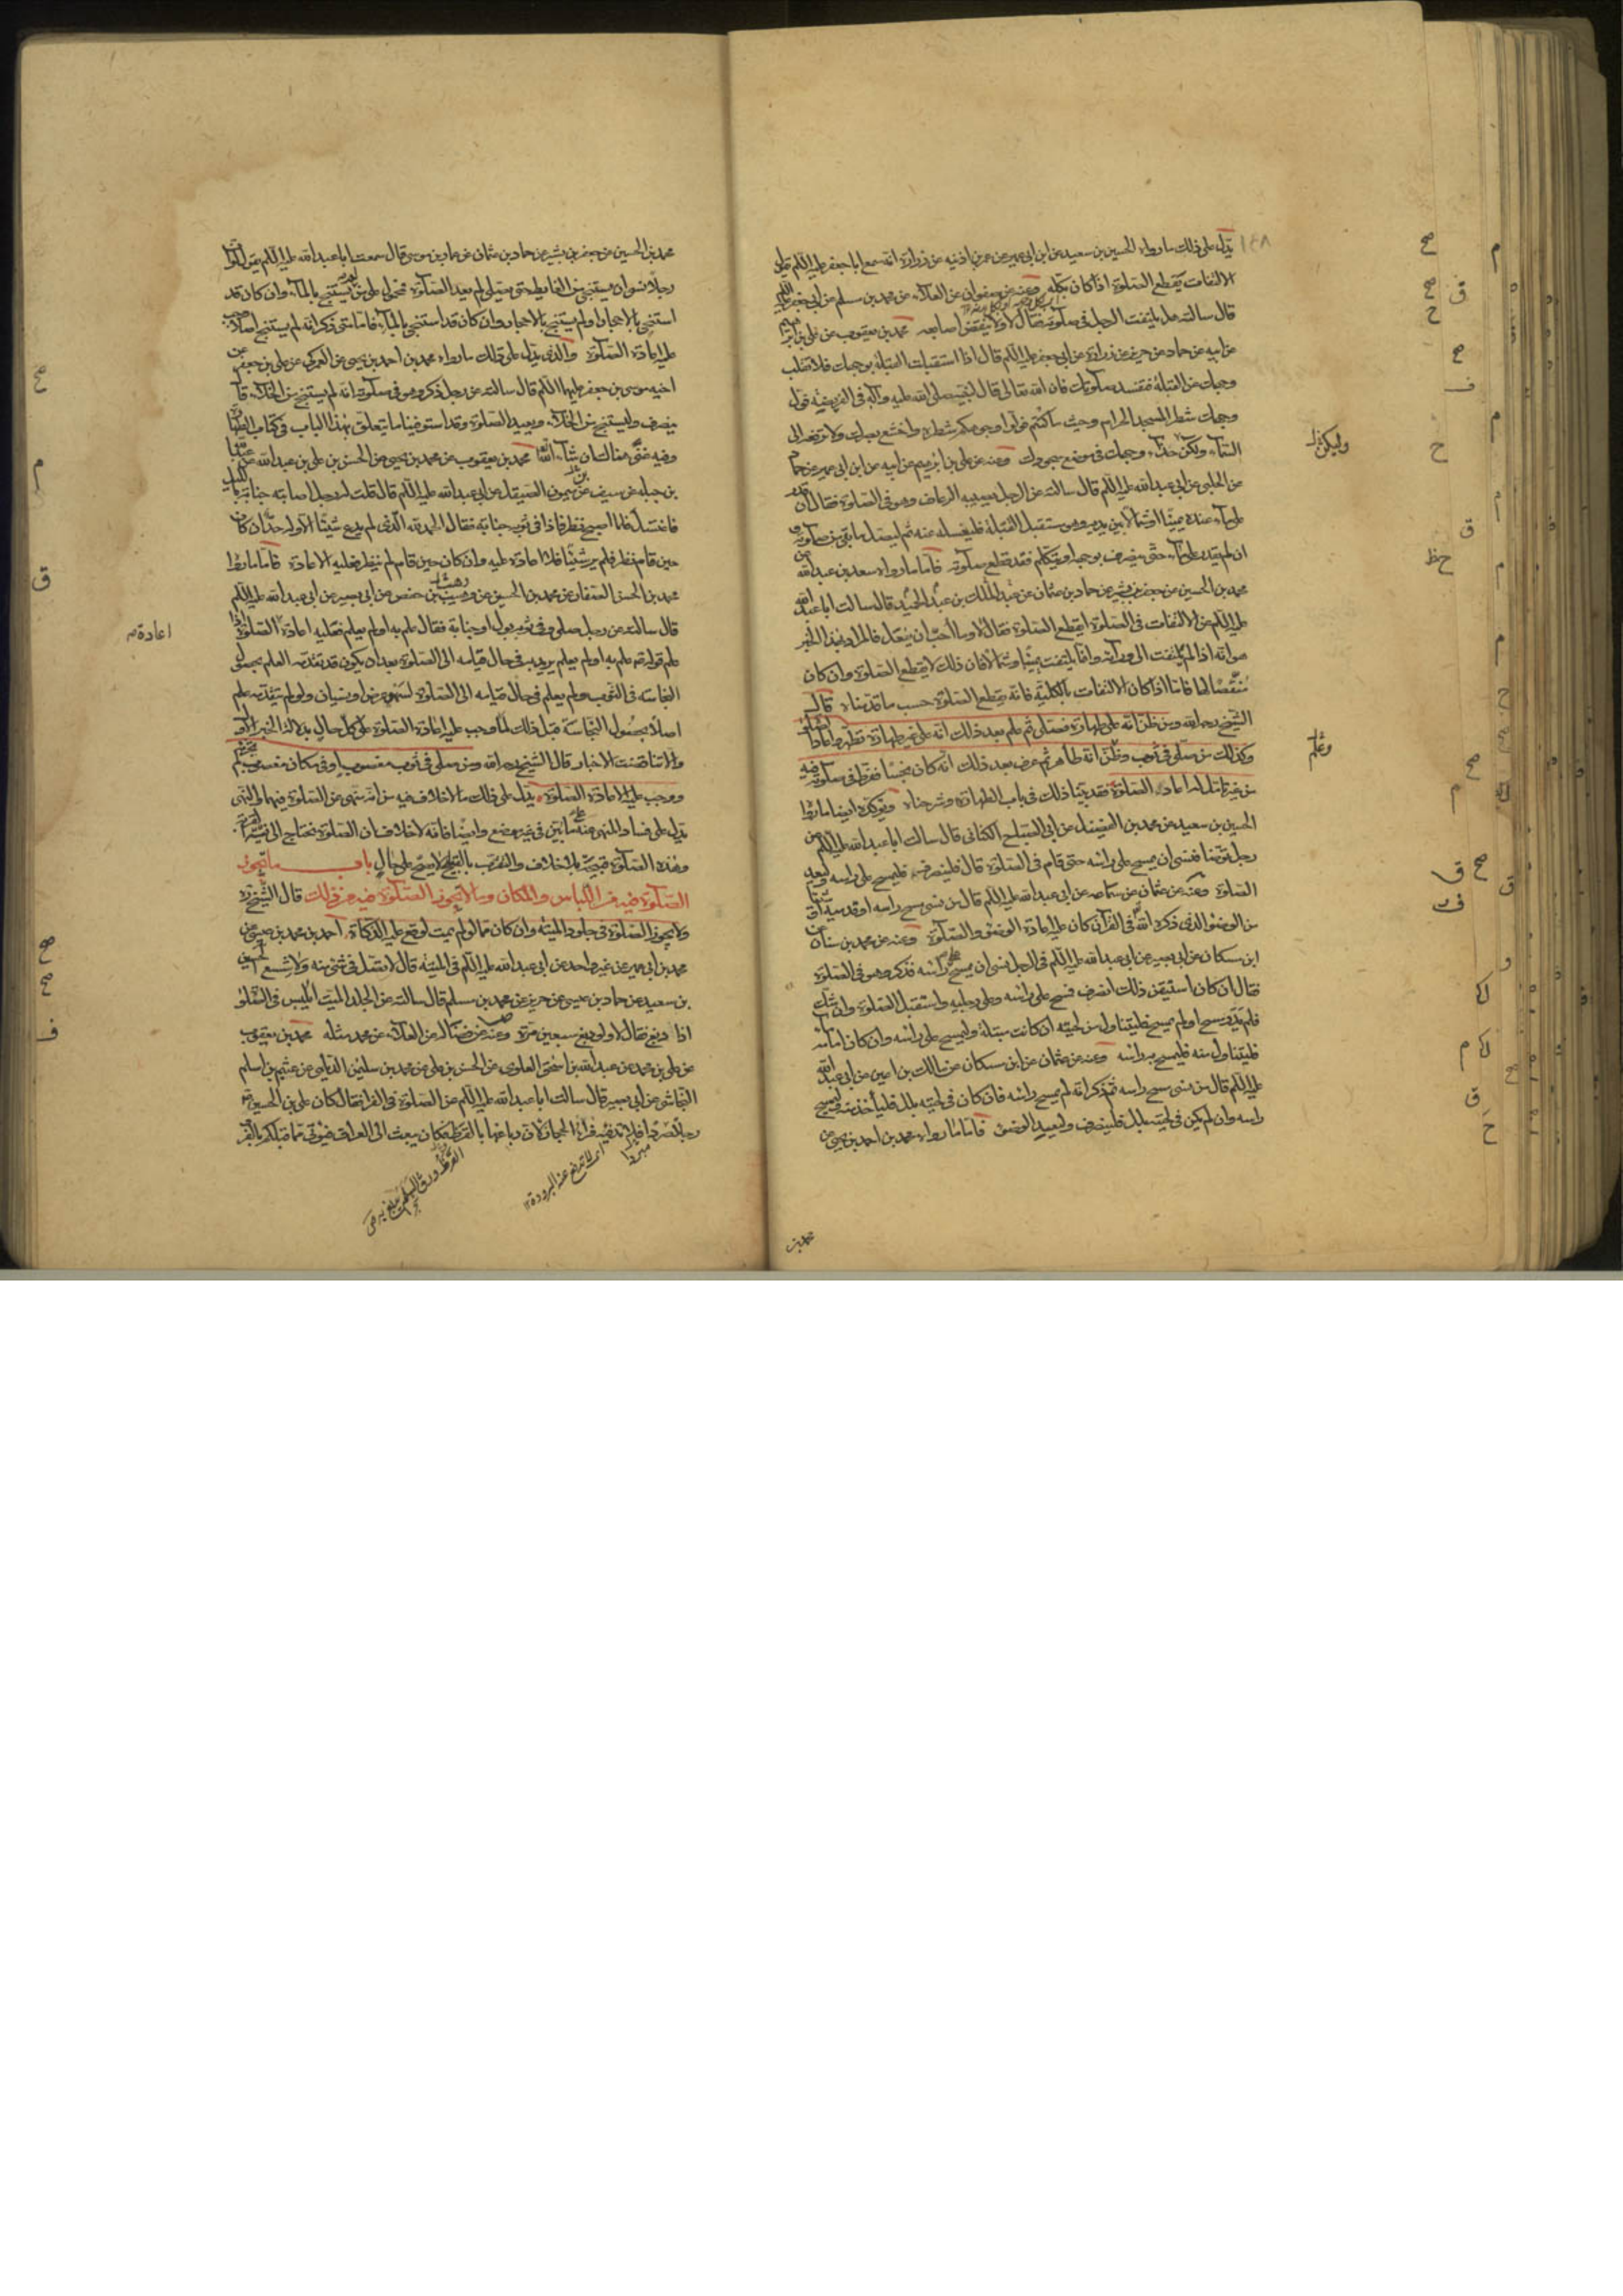 ١٤٨
يدل على ذلك ما رواه الحسين بن سعيد عن ابن ابي عمير عن عمر بن اذينه عن زرارة انه سمع ابا جعفر عليه السلم يقول
الالتفات يقطع الصلوة اذا كان بكله وعنه عن صفوان عن العلاء عن محمد بن مسلم عن ابي جعفر عليه السلم
قال سالته هل يلتفت الرجل في صلوته فقال لا ولا ينقض اصابعه محمد بن يعقوب عن علي بن ابراهيم
عن ابيه عن حماد عن حريز عن زرارة عن ابي جعفر عليه السلم قال اذا استقبلت القبلة بوجهك فلا تقلب
وجهك عن القبلة فتفسد صلوتك فان الله تعالى قال لنبيه صلى الله عليه وآله في الفريضة فول
وجهك شطر المسجد الحرام وحيث ما كنتم فولوا وجوهكم شطره واخشع ببصرك ولا ترفعه الى
السماء ولكن حذاء وجهك في موضع سجودك وعنه عن علي بن ابرهيم عن ابيه عن ابن ابي عمير عن حماد
عن الحلبي عن ابي عبد الله عليه السلم قال سالته عن الرجل يصيبه الرعاف وهو في الصلوة فقال ان قدر
على ماء عنده يمينا او شمالا بين يديه وهو مستقبل القبلة فليغسله عنه ثم ليصل ما بقي من صلوته و
ان لم يقدر على ماء حتى ينصرف بوجهه او يتكلم فقد قطع صلوته فاما ما رواه سعد بن عبد الله عن
محمد بن الحسين عن جعفر بن بشير عن حماد بن عثمان عن عبد الملك بن عبد الحميد قال سالت ابا عبد الله
عليه السلم عن الالتفات في الصلوة ايقطع الصلوة فقال لا وما احب ان يفعل فالمراد بهذا الخبر
هو انه اذا لم يلتفت الى ورائه وانما يلتفت يمينا وشمالا فان ذلك لا يقطع الصلوة وان كان
منقصا لها فاما اذا كان الالتفات بالكلية فانه يقطع الصلوة حسب ما قدمناه قال
الشيخ رحمه الله ومن ظن انه على طهارة فصلى ثم علم بعد ذلك انه على غير طهارة تطهر واعاد الصلوة
وكذلك من صلى في ثوب وظن انه طاهر ثم عرف بعد ذلك انه كان نجسا ففرط في صلوته فيه
من غير تامل له اعاد الصلوة فقد بينا ذلك في باب الطهارة وشرحناه ويؤكده ايضا ما رواه
الحسين بن سعيد عن محمد بن الفضيل عن ابي الصباح الكناني قال سالت ابا عبد الله عليه السلم عن
رجل توضا فنسى ان يمسح على راسه حتى قام في الصلوة قال فلينصرف فليمسح على راسه وليعد
الصلوة وعنه عن عثمان عن سماعه عن ابي عبد الله عليه السلم قال من نسى مسح راسه او قدميه او شيئا
من الوضوء الذي ذكره الله في القرآن كان عليه اعادة الوضوء والصلوة وعنه عن محمد بن سنان عن
ابن مسكان عن ابي بصير عن ابي عبد الله عليه السلم في الرجل نسى ان يمسح على راسه فذكر وهو في الصلوة
فقال ان كان استيقن ذلك انصرف فمسح على راسه وعلى رجليه واستقبل الصلوة وان شك
فلم يدر مسح او لم يمسح فليتناول من لحيته ان كانت مبتلة وليمسح على راسه وان كان امامه
فليتناول منه فليمسح به راسه وعنه عن عثمان عن ابن مسكان عن مالك بن اعين عن ابي عبد الله
عليه السلم قال من نسى مسح راسه ثم ذكر انه لم يمسح راسه فان كان في لحيته بلل فلياخذ منه وليمسح
راسه وان لم يكن في لحيته بلل فلينصرف وليعيد الوضوء فاما ما رواه محمد بن احمد بن يحيى عن
محمد بن
محمد بن الحسين عن جعفر بن بشير عن حماد بن عثمان عن عمار بن موسى قال سمعت ابا عبد الله عليه السلم يقول لو ان
رجلا نسى ان يستنجى من الغايط حتى يصلى لم يعد الصلوة فمحمول على من لم يستنج بالماء وان كان قد
استنجى بالاحجار او لم يستنج بالاحجار وان كان قد استنجى بالماء فاما متى ذكر انه لم يستنج اصلا وجب
عليه اعادة الصلوة والذى يدل على ذلك ما رواه محمد بن احمد بن يحيى عن العمركي عن علي بن جعفر عن
اخيه موسى بن جعفر عليهما السلم قال سالته عن رجل ذكر وهو في صلوته انه لم يستنج من الخلاء قال
ينصرف وليستنج من الخلاء ويعيد الصلوة وقد استوفينا ما يتعلق بهذا الباب في كتاب الطهارة
وفيه غنى هناك ان شاء الله محمد بن يعقوب عن محمد بن يحيى عن الحسن بن علي بن عبد الله عن عبد الله
بن جبله عن سيف عن ميمون الصيقل عن ابي عبد الله عليه السلم قال قلت له رجل اصابته جنابة بالليل
فاغتسل فلما اصبح نظر فاذا في ثوبه جنابة فقال الحمد لله الذى لم يدع شيئا الا وله حد ان كان
حين قام نظر فلم ير شيئا فلا اعادة عليه وان كان حين قام لم ينظر فعليه الاعادة فاما ما رواه
محمد بن الحسن الصفار عن محمد بن الحسين عن وهيب بن حفص عن ابي بصير عن ابي عبد الله عليه السلم
قال سالته عن رجل صلى وفي ثوبه بول او جنابة فقال علم به او لم يعلم فعليه اعادة الصلوة اذا
علم قوله ثم علم به او لم يعلم يريد به في حال قيامه الى الصلوة بعد ان يكون قد تقدمه العلم بحصول
النجاسة في الثوب ولم يعلم في حال قيامه الى الصلوة لسهو عرض او نسيان ولو لم يتقدمه علم
اصلا بحصول النجاسة قبل ذلك لما وجب عليه اعادة الصلوة على كل حال بدلالة الخبر الاول
والا تناقضت الاخبار قال الشيخ رحمه الله ومن صلى في ثوب مغصوب او في مكان مغصوب لم يجزه
ووجب عليه اعادة الصلوة يدل على ذلك ما لا خلاف فيه من انه نهى عن الصلوة فيهما والنهى
يدل على فساد المنهى عنه على ما بين في غير موضع وايضا فانه لا خلاف ان الصلوة تحتاج الى نية القربة
وهذه الصلوة قبيحة بلا خلاف والتقرب بالقبيح لا يصح على حال باب ما يجوز
الصلوة فيه من اللباس والمكان وما لا يجوز الصلوة فيه من ذلك قال الشيخ ره
ولا يجوز الصلوة في جلود الميتة وان كان مما لو لم يمت لوقع عليه الذكاة احمد بن محمد بن عيسى عن
محمد بن ابي عمير عن غير واحد عن ابي عبد الله عليه السلم في الميتة قال لا تصل في شئ منه ولا شسع الحسين
بن سعيد عن حماد بن عيسى عن حريز عن محمد بن مسلم قال سالته عن الجلد الميت ايلبس في الصلوة
اذا دبغ فقال لا ولو دبغ سبعين مرة وعنه عن فضاله عن العلاء عن محمد مثله محمد بن يعقوب
عن علي بن محمد عن عبد الله بن اسحق العلوى عن الحسن بن علي عن محمد بن سليمن الديلمي عن عيثم بن اسلم
النجاشى عن ابي بصير قال سالت ابا عبد الله عليه السلم عن الصلوة في الفرا فقال كان علي بن الحسين ع
رجلا صردا فلا تدفيه فراء الحجاز لان دباغها بالقرظ فكان يبعث الى العراق فيؤتى مما قبلكم بالفرو
اعادة صح
اى لا ترفع عنه البرودة
القرظ ورق السلم يدبغ به ص